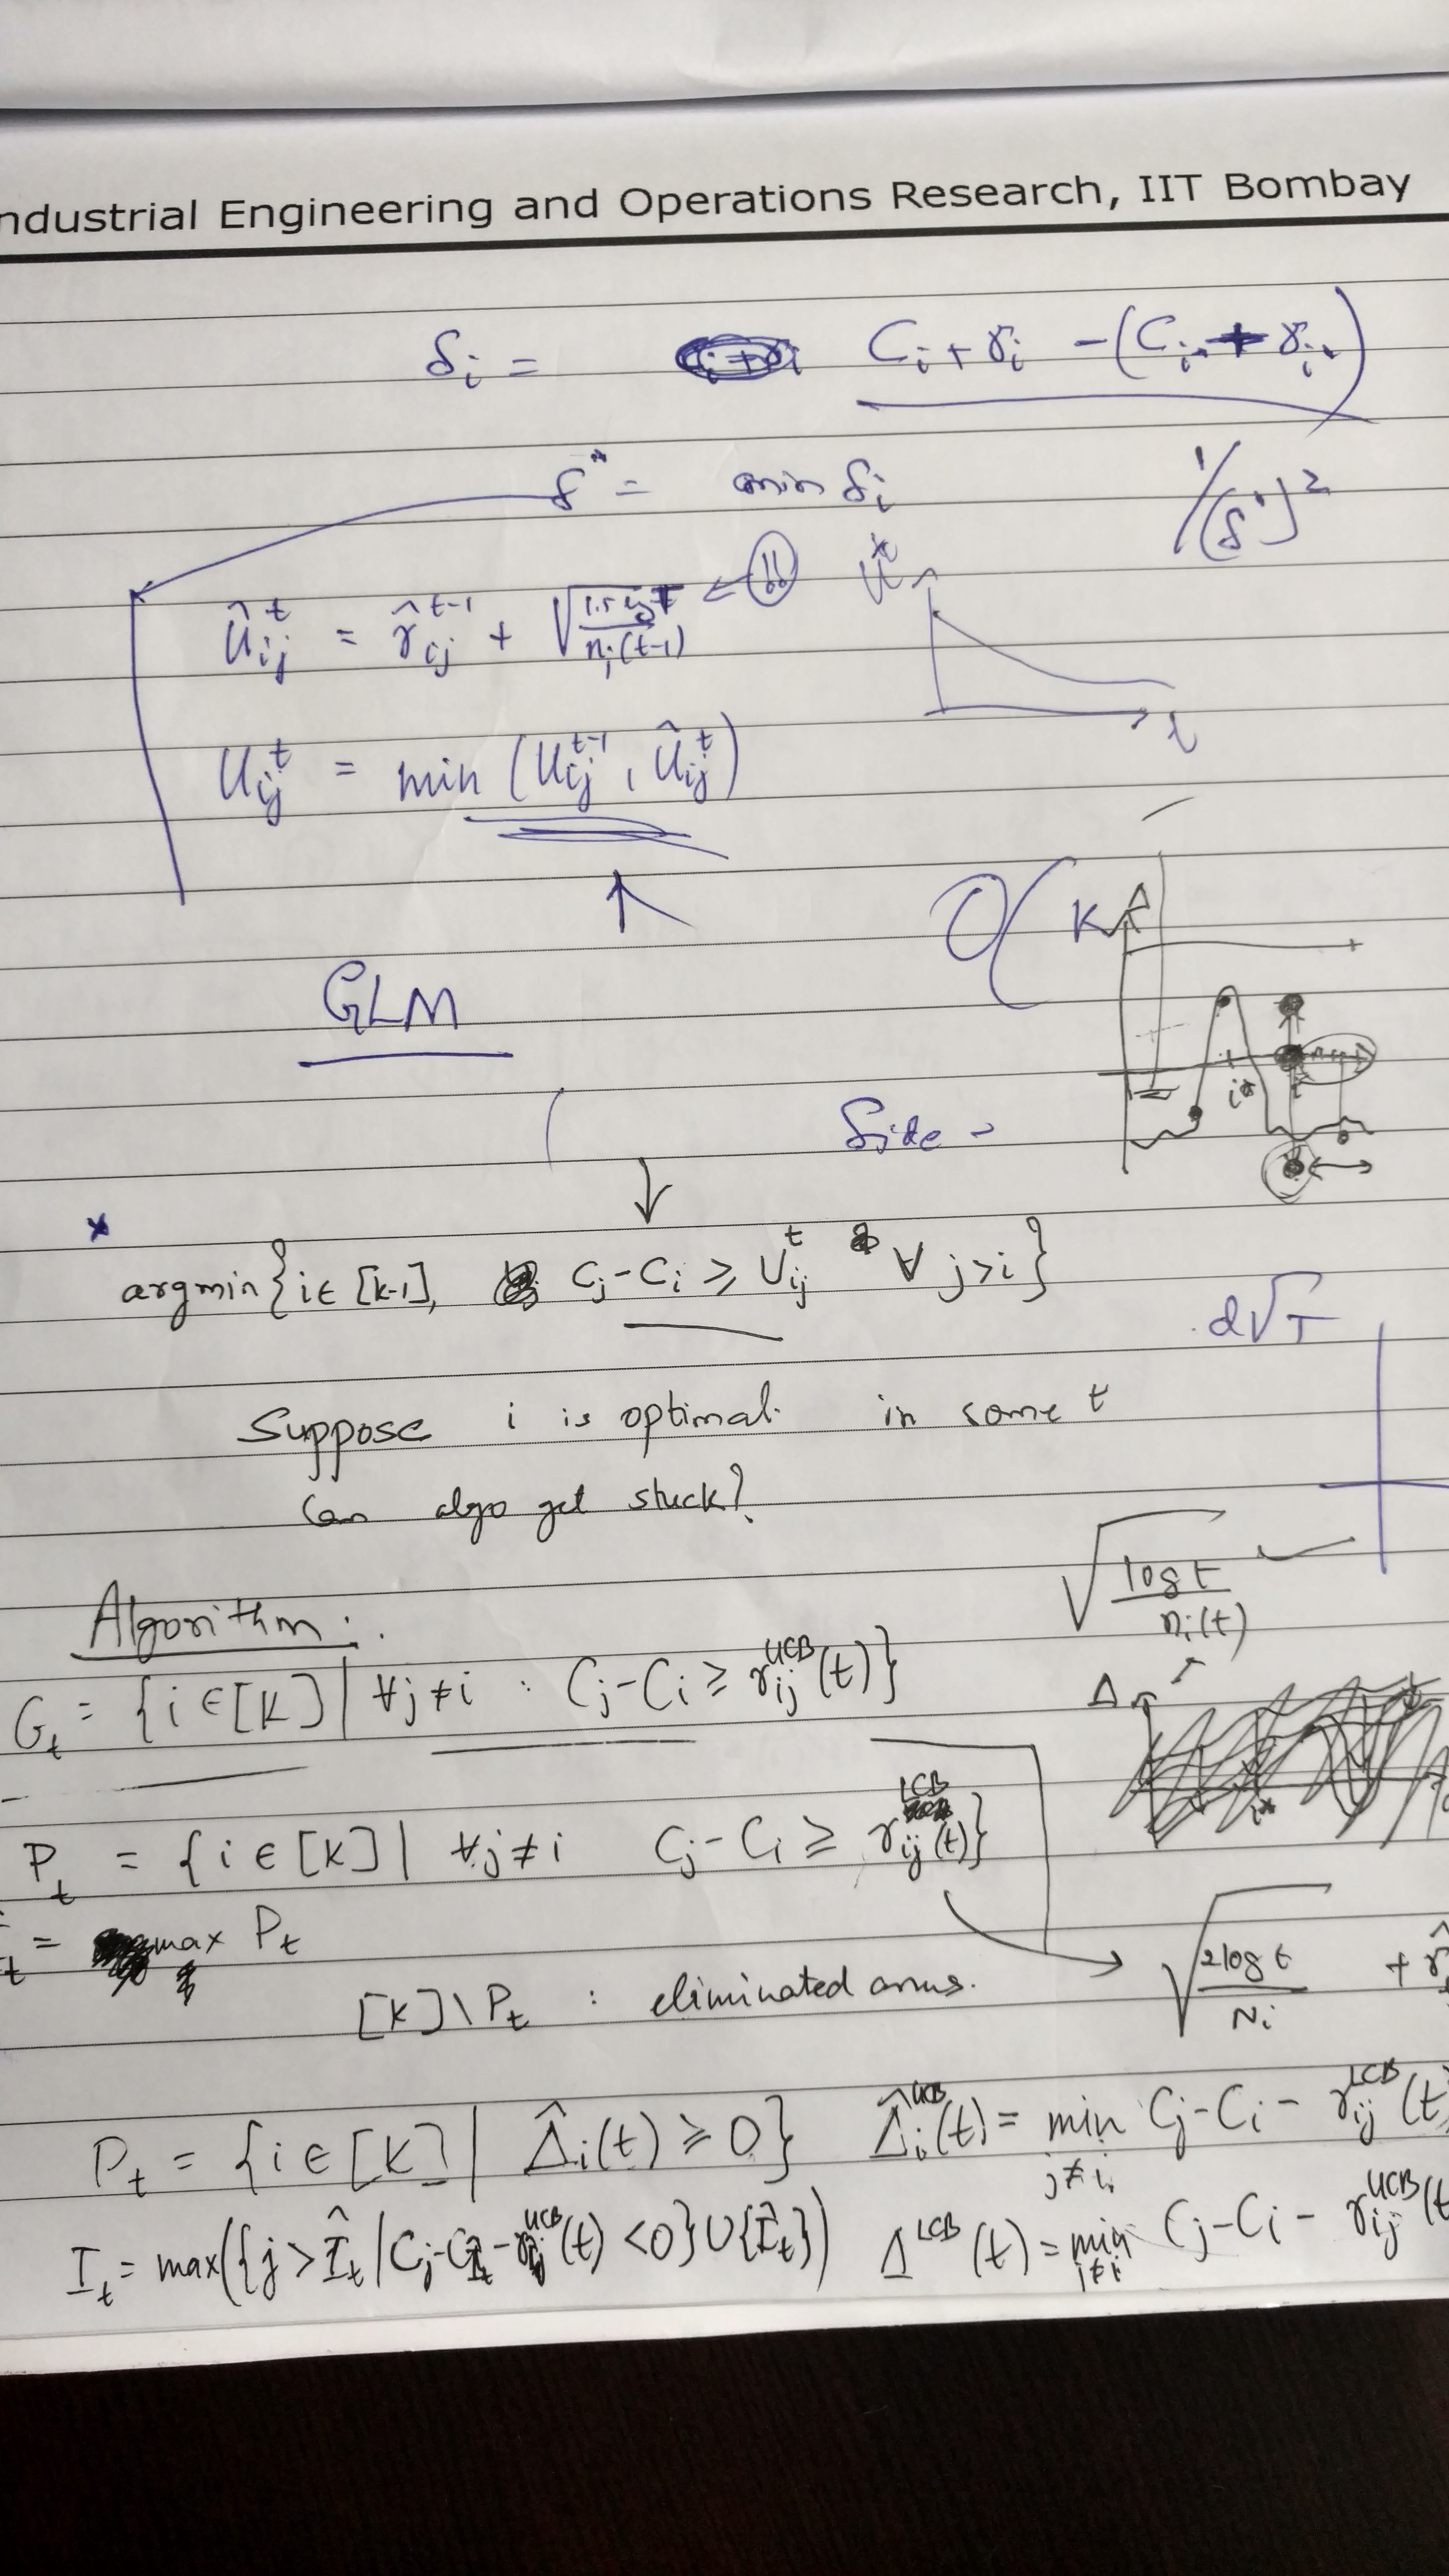 ndustrial Engineering and Operations Research, IIT Bombay
δ_i = C_i + γ_i - (C_i* + γ_i*)
δ* = min δ_i 1/(δ*)^2
Û_ij^t = γ̂_ij^{t-1} + √(1.5 log t / n_j(t-1))
U_ij^t = min (U_ij^{t-1}, Û_ij^t) t
O( K
GLM
i*
Side -
argmin{i ∈ [k-1], C_j - C_i ≥ U_ij^t ∀ j>i}
d√T
Suppose i is optimal in some t
Can algo get stuck?
√(log t / n_i(t))
Algorithm:
G_t = {i ∈ [K] | ∀j≠i : C_j - C_i ≥ γ_ij^UCB(t)}
Δ
i*
P_t = {i ∈ [K] | ∀j≠i C_j - C_i ≥ γ_ij^LCB(t)}
t = max P_t
[K] \ P_t : eliminated arms.
√(2 log t / N_i) + γ̂
P_t = {i ∈ [K] | Δ̂_i(t) ≥ 0} Δ̂_i^UCB(t) = min_{j≠i} C_j - C_i - γ_ij^LCB(t)
I_t = max({j > Î_t | C_j - C_Î_t - γ_ij^UCB(t) < 0} U {Î_t}) Δ^LCB(t) = min_{j≠i} C_j - C_i - γ_ij^UCB(t